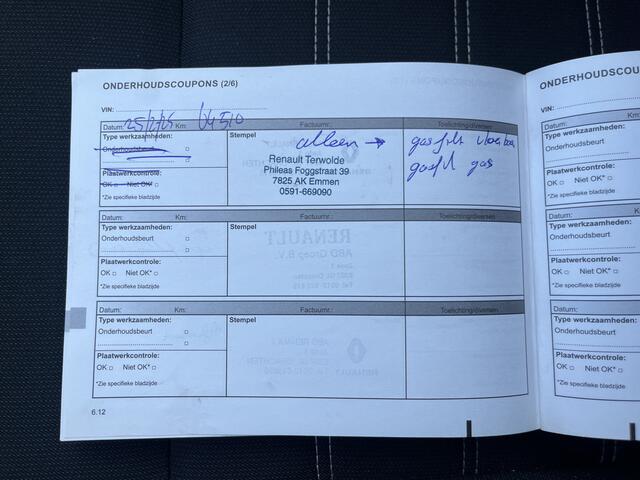 ONDERHOUDSCOUPONS (2/6)
VIN:
Datum: 25/2/25 Km: Factuurnr.: Toelichting/diversen
Type werkzaamheden: Stempel alleen → gasfilt
Onderhoudsbeurt
Renault Terwolde gasfilt gas
Phileas Foggstraat 39
Plaatwerkcontrole: 7825 AK Emmen
OK Niet OK* 0591-669090
*Zie specifieke bladzijde
Datum: Km: Factuurnr.: Toelichting/diversen
Type werkzaamheden: Stempel
Onderhoudsbeurt
Plaatwerkcontrole:
OK Niet OK*
*Zie specifieke bladzijde
Datum: Km: Factuurnr.: Toelichting/diversen
Type werkzaamheden: Stempel
Onderhoudsbeurt
Plaatwerkcontrole:
OK Niet OK*
*Zie specifieke bladzijde
6.12
ONDERHOUDSC
VIN:
Datum:
Type werkzaamheden:
Onderhoudsbeurt
Plaatwerkcontrole:
OK Niet OK*
*Zie specifieke bladzijde
Datum:
Type werkzaamheden:
Onderhoudsbeurt
Plaatwerkcontrole:
OK Niet OK*
*Zie specifieke bladzijde
Datum:
Type werkzaamheden:
Onderhoudsbeurt
Plaatwerkcontrole:
OK Niet OK*
*Zie specifieke bladzijde